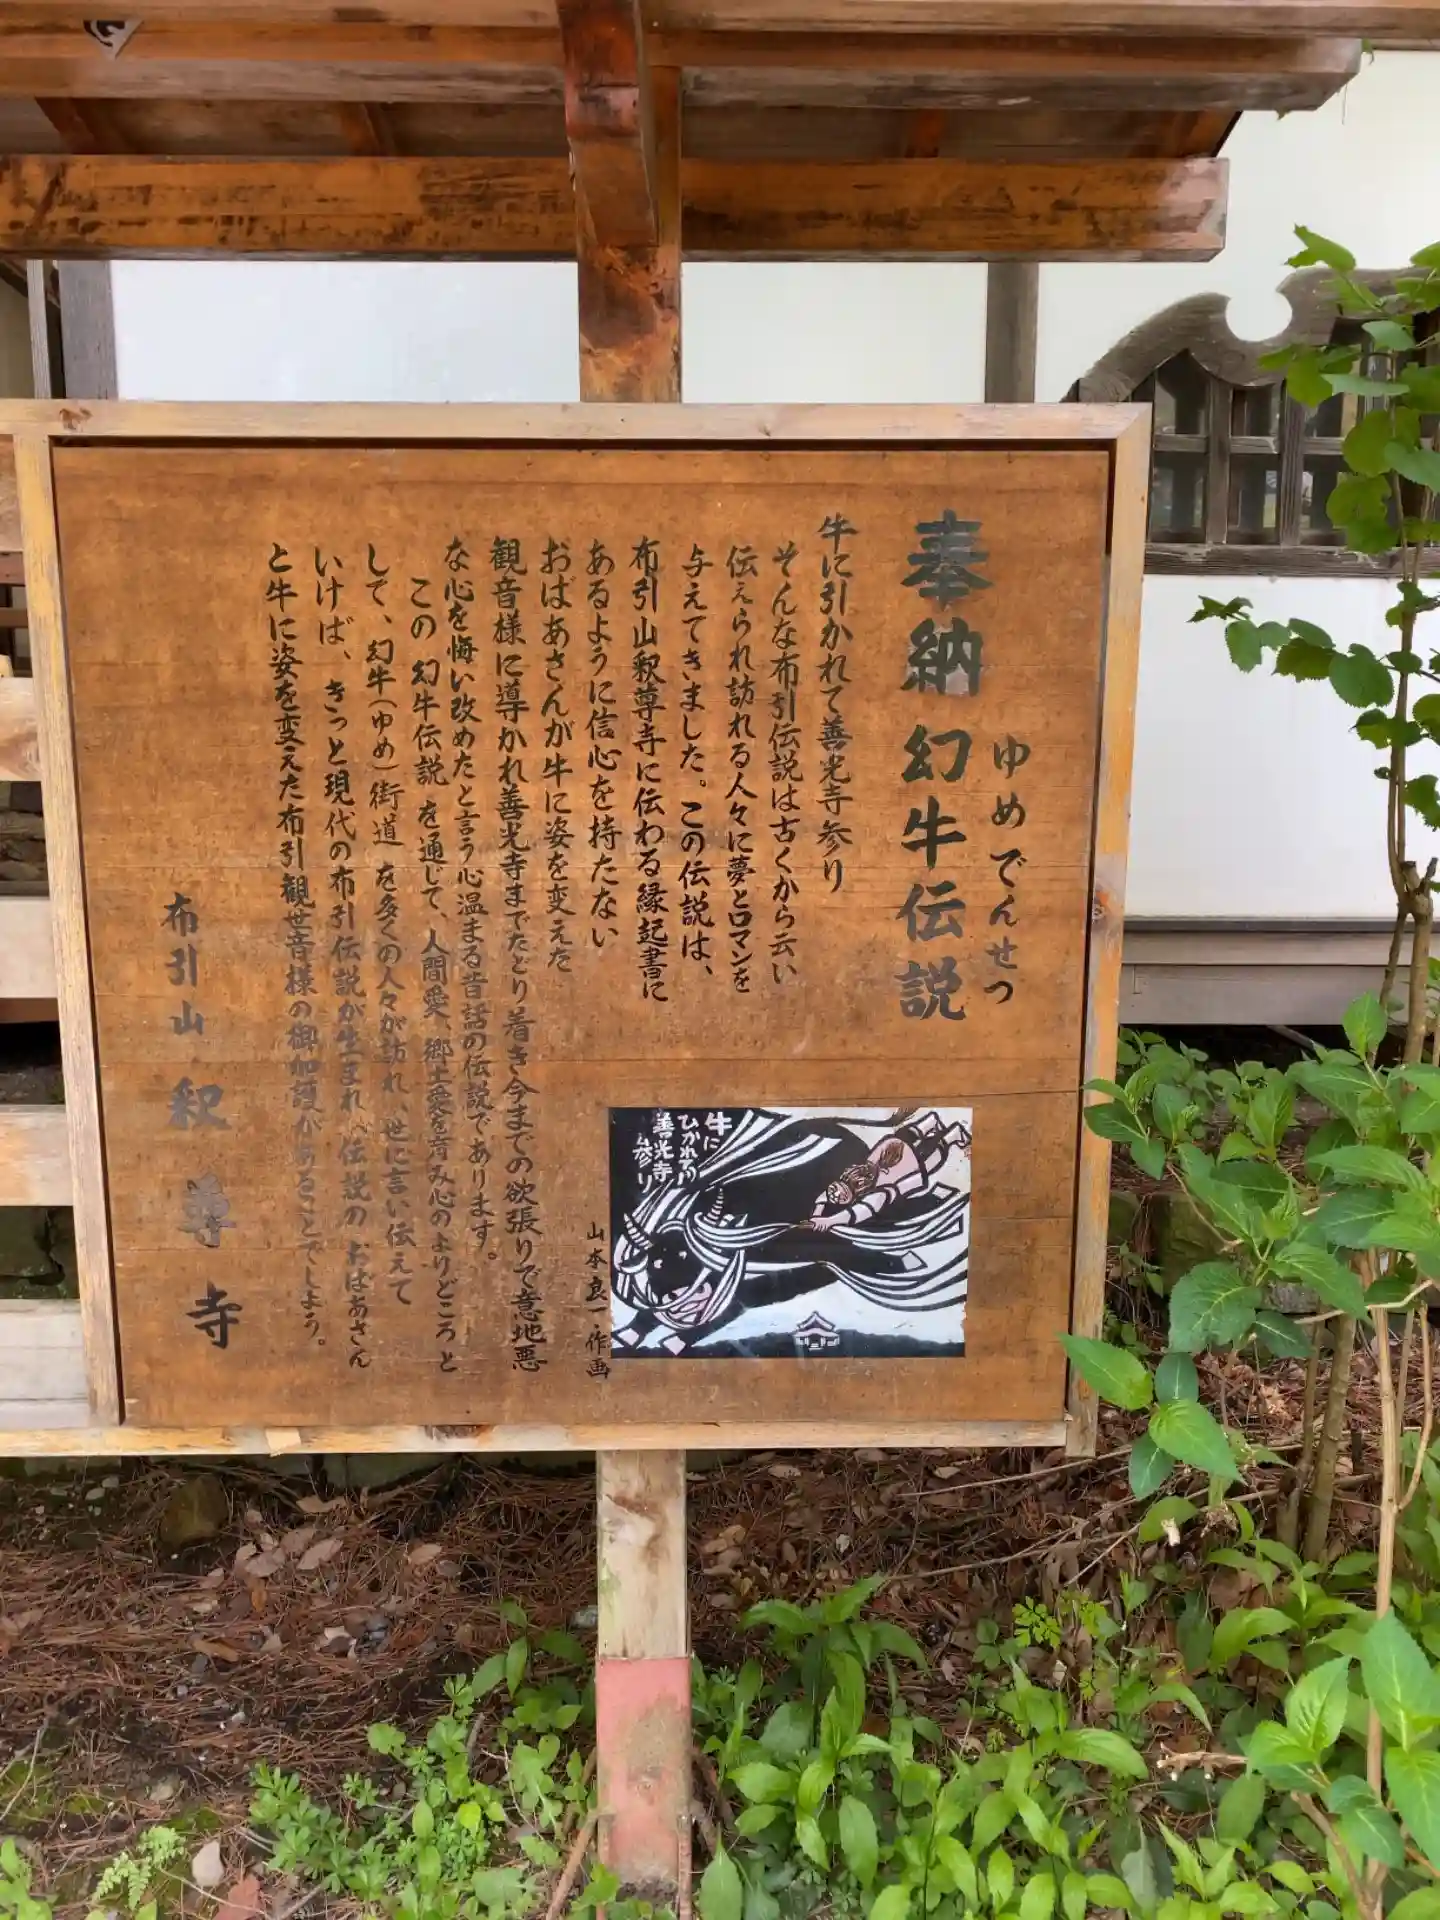 ゆめでんせつ
奉納 幻牛伝説
牛に引かれて善光寺参り
そんな布引伝説は古くから云い
伝えられ訪れる人々に夢とロマンを
与えてきました。この伝説は、
布引山釈尊寺に伝わる縁起書に
あるように信心を持たない
おばあさんが牛に姿を変えた
観音様に導かれ善光寺までたどり着き今までの欲張りで意地悪
な心を悔い改めたと言う心温まる昔話の伝説であります。
この 幻牛伝説 を通じて、人間愛、郷土愛を育み心のよりどころと
して、幻牛(ゆめ)街道 を多くの人々が訪れ、世に言い伝えて
いけば、きっと現代の布引伝説が生まれ、伝説の おばあさん
と牛に姿を変えた布引観世音様の御加護があることでしょう。
布引山 釈尊寺
牛に
ひかれて
善光寺
参り
山本良一・作画